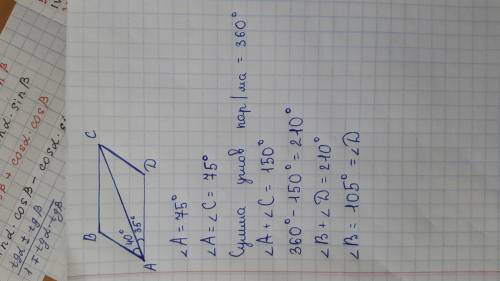 B
C
A
D
40°
35°
∠A = 75°
∠A = ∠C = 75°
Сумма углов пар/ма = 360°
∠A + ∠C = 150°
360° - 150° = 210°
∠B + ∠D = 210°
∠B = 105° = ∠D